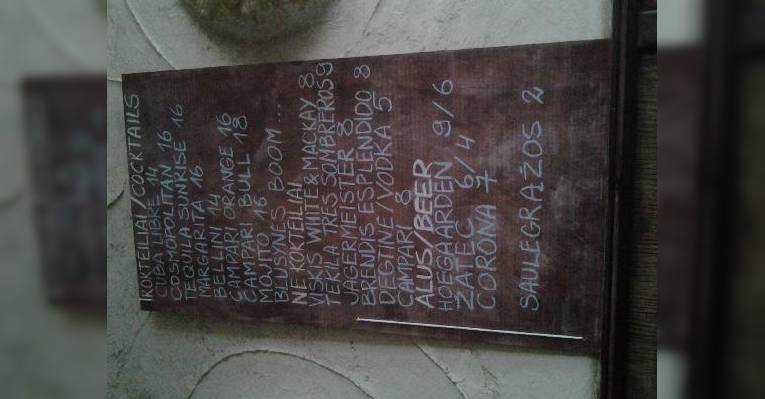 KOKTEILIAI/COCKTAILS
CUBA LIBRE 14
COSMOPOLITAN 16
TEQUILA SUNRISE 16
MARGARITA 16
BELLINI 14
CAMPARI ORANGE 16
CAMPARI BULL 18
MOJITO 16
BLUSYNĖS BOOM...
NE KOKTEILIAI
VISKIS WHITE & MACKAY 8
TEKILA TRES SOMBREROS 9
JÄGERMEISTER 8
BRENDIS ESPLENDIDO 8
DEGTINĖ/VODKA 5
CAMPARI 8
ALUS/BEER
HOEGAARDEN 9/6
ZATEC 6/4
CORONA 7
SAULEGRAZOS 2